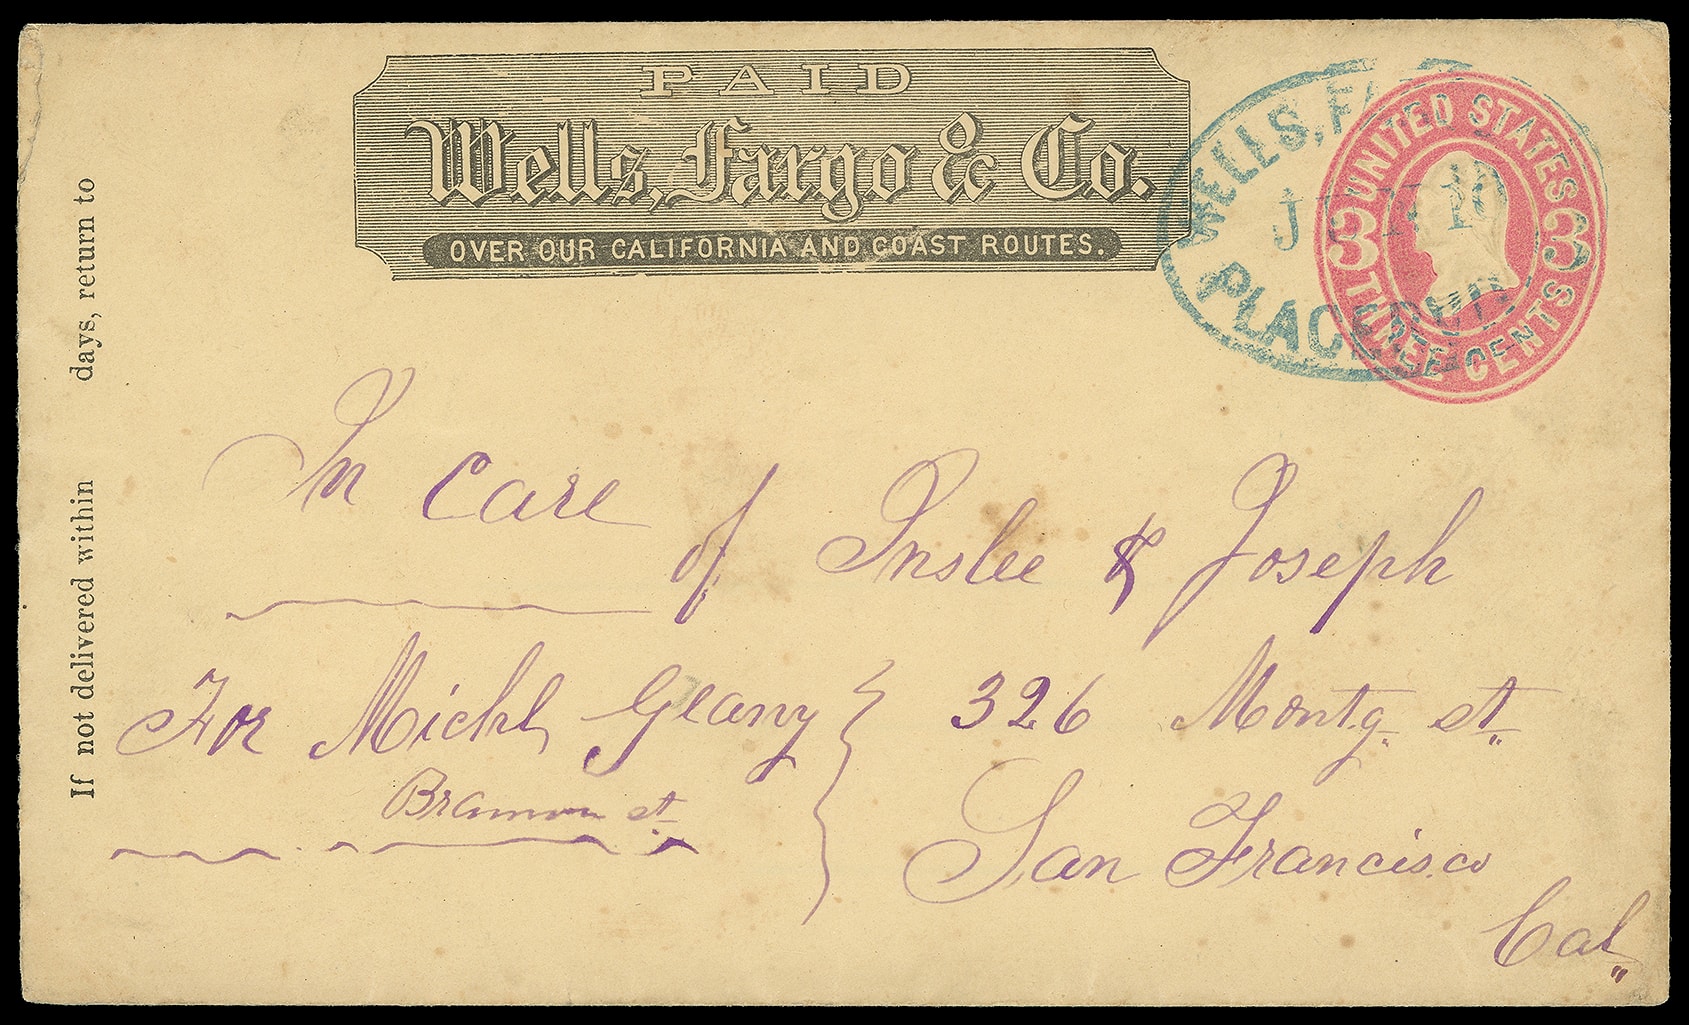 PAID
Wells, Fargo & Co.
OVER OUR CALIFORNIA AND COAST ROUTES.
WELLS, FA
PLACER
UNITED STATES
3 3
THREE CENTS
If not delivered within days, return to
In care
of Inslee & Joseph
For Michl Geany } 326 Montg. st.
Brannan st.
San Francisco
Cal,